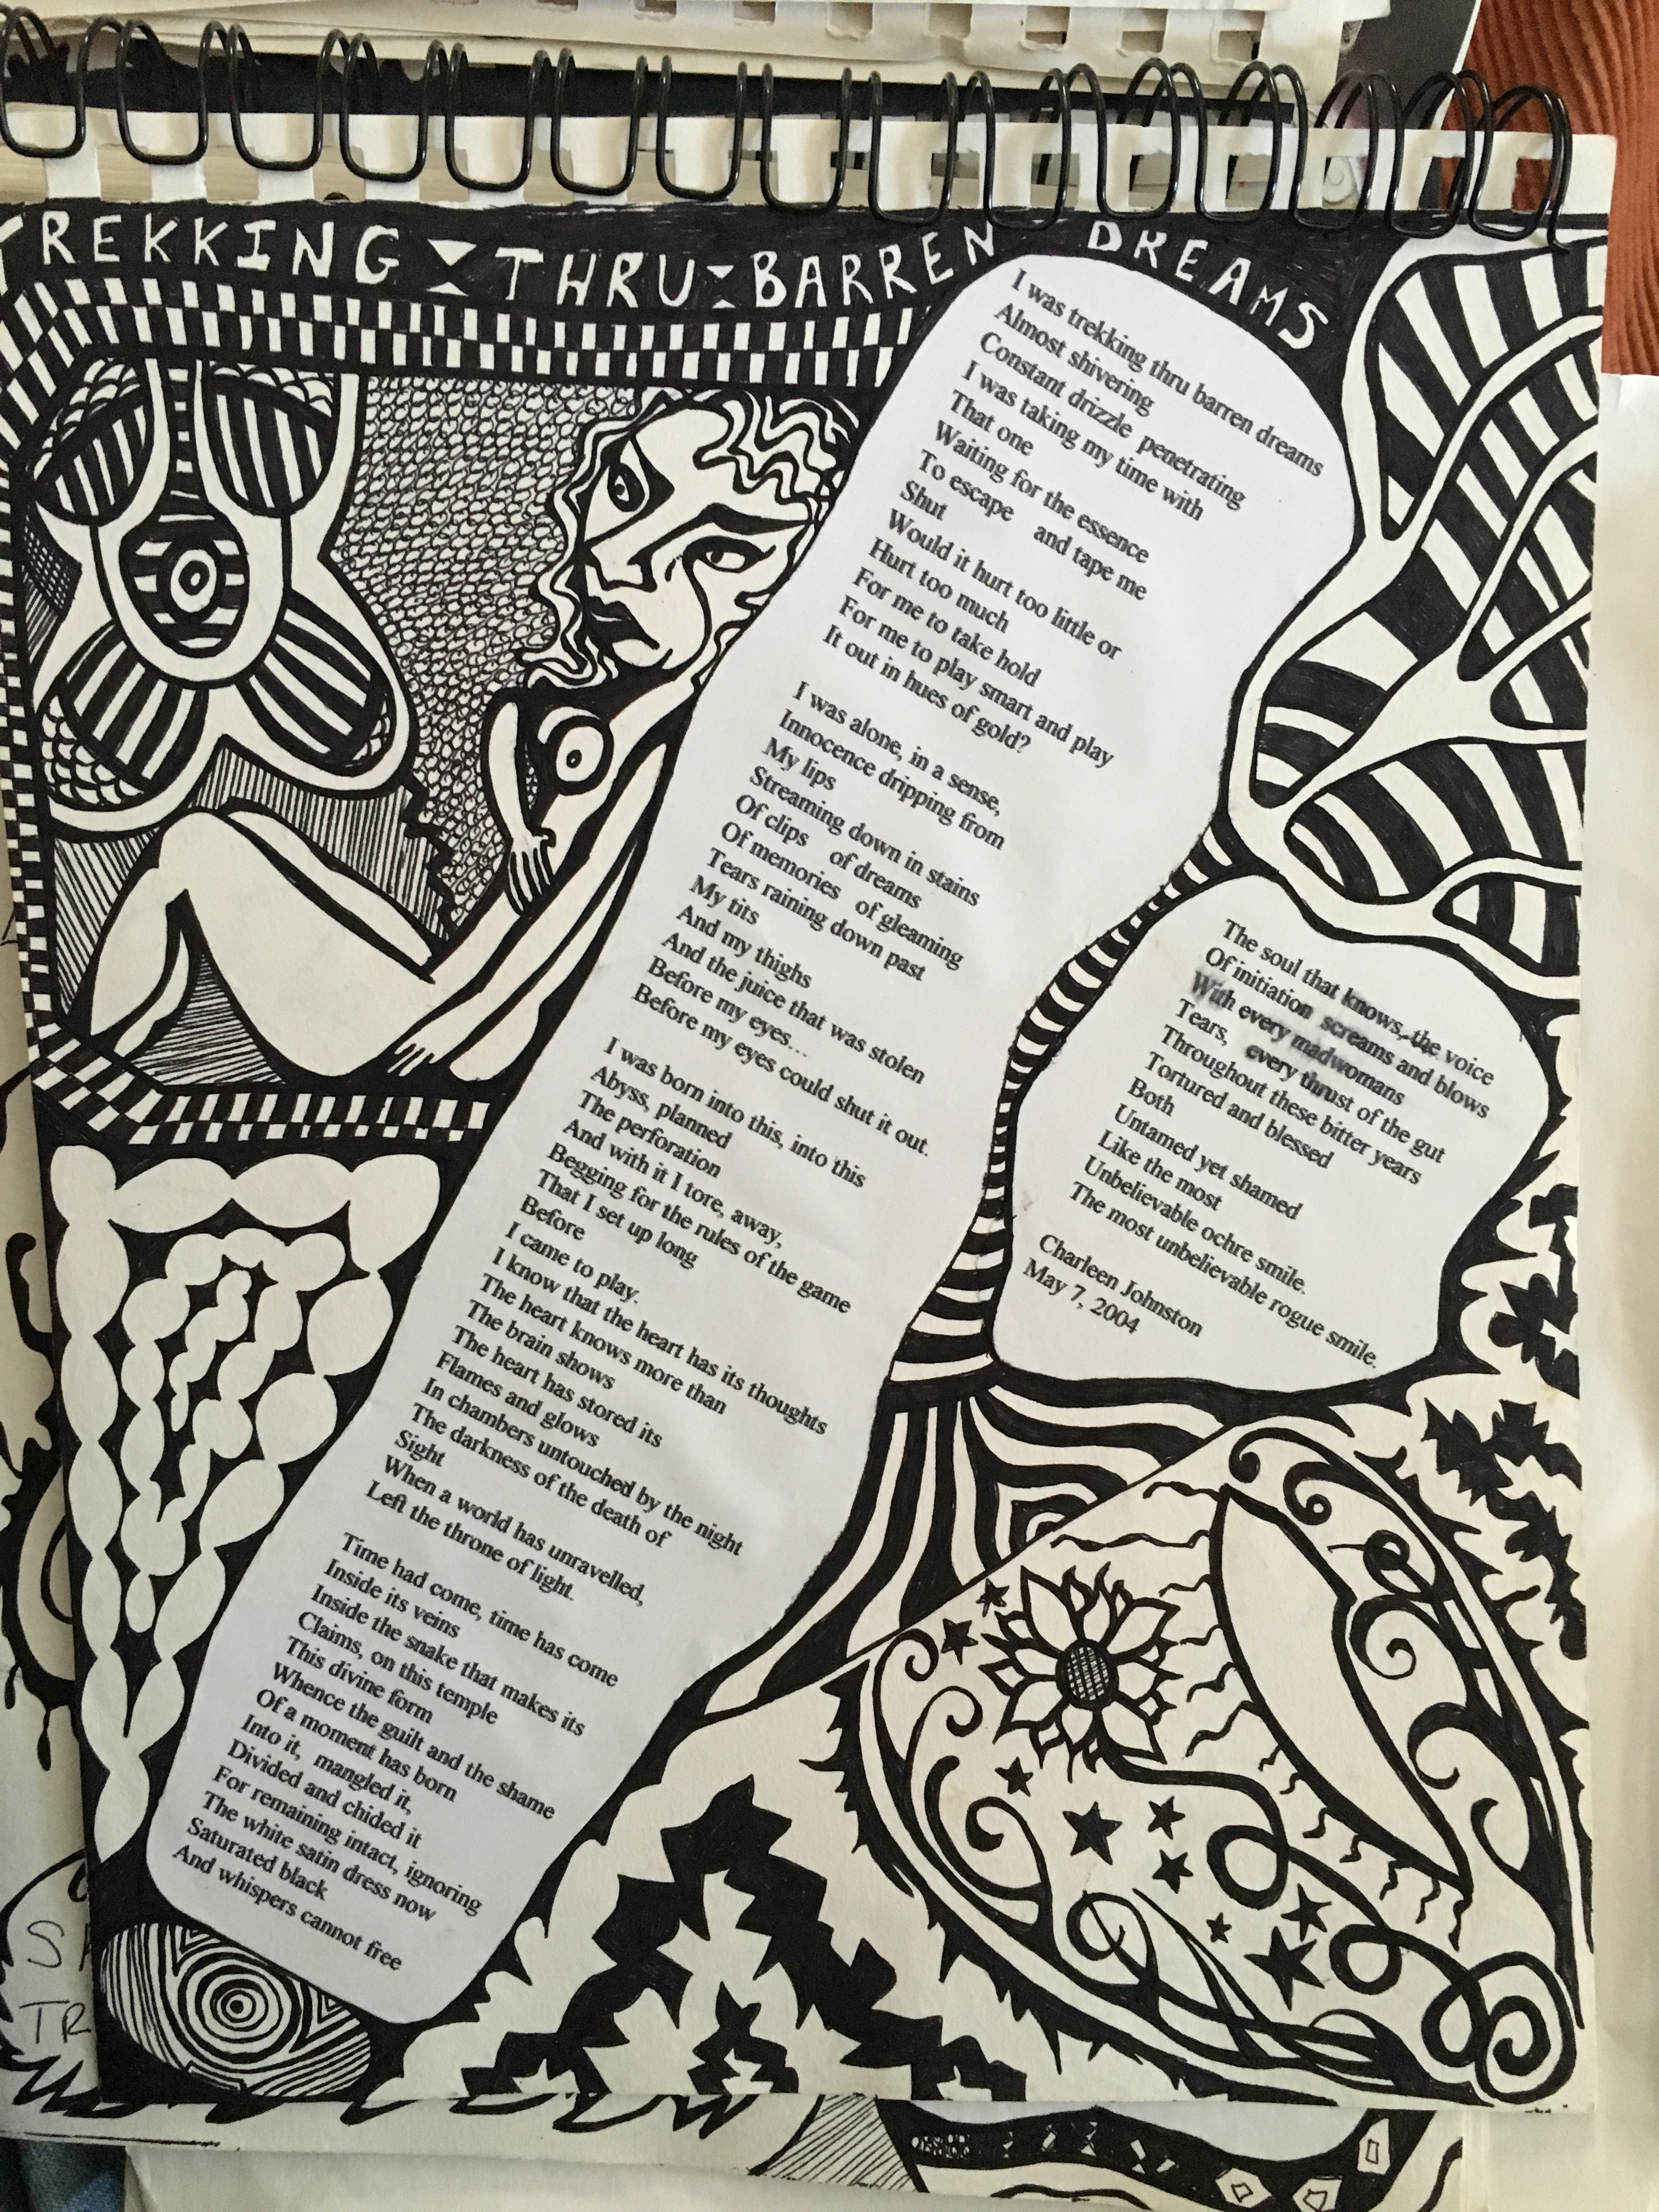 TREKKING THRU BARREN DREAMS
I was trekking thru barren dreams
Almost shivering
Constant drizzle penetrating
I was taking my time with
That one
Waiting for the essence
To escape and tape me
Shut
Would it hurt too little or
Hurt too much
For me to take hold
For me to play smart and play
It out in hues of gold?
I was alone, in a sense,
Innocence dripping from
My lips
Streaming down in stains
Of clips of dreams
Of memories of gleaming
Tears raining down past
My tits
And my thighs
And the juice that was stolen
Before my eyes...
Before my eyes could shut it out.
I was born into this, into this
Abyss, planned
The perforation
And with it I tore, away,
Begging for the rules of the game
That I set up long
Before
I came to play.
I know that the heart has its thoughts
The heart knows more than
The brain shows
The heart has stored its
Flames and glows
In chambers untouched by the night
The darkness of the death of
Sight
When a world has unravelled,
Left the throne of light.
Time had come, time has come
Inside its veins
Inside the snake that makes its
Claims, on this temple
This divine form
Whence the guilt and the shame
Of a moment has born
Into it, mangled it,
Divided and chided it
For remaining intact, ignoring
The white satin dress now
Saturated black
And whispers cannot free
The soul that knows, the voice
Of initiation screams and blows
With every madwomans
Tears, every thrust of the gut
Throughout these bitter years
Tortured and blessed
Both
Untamed yet shamed
Like the most
Unbelievable ochre smile.
The most unbelievable rogue smile.
Charleen Johnston
May 7, 2004
S
TR